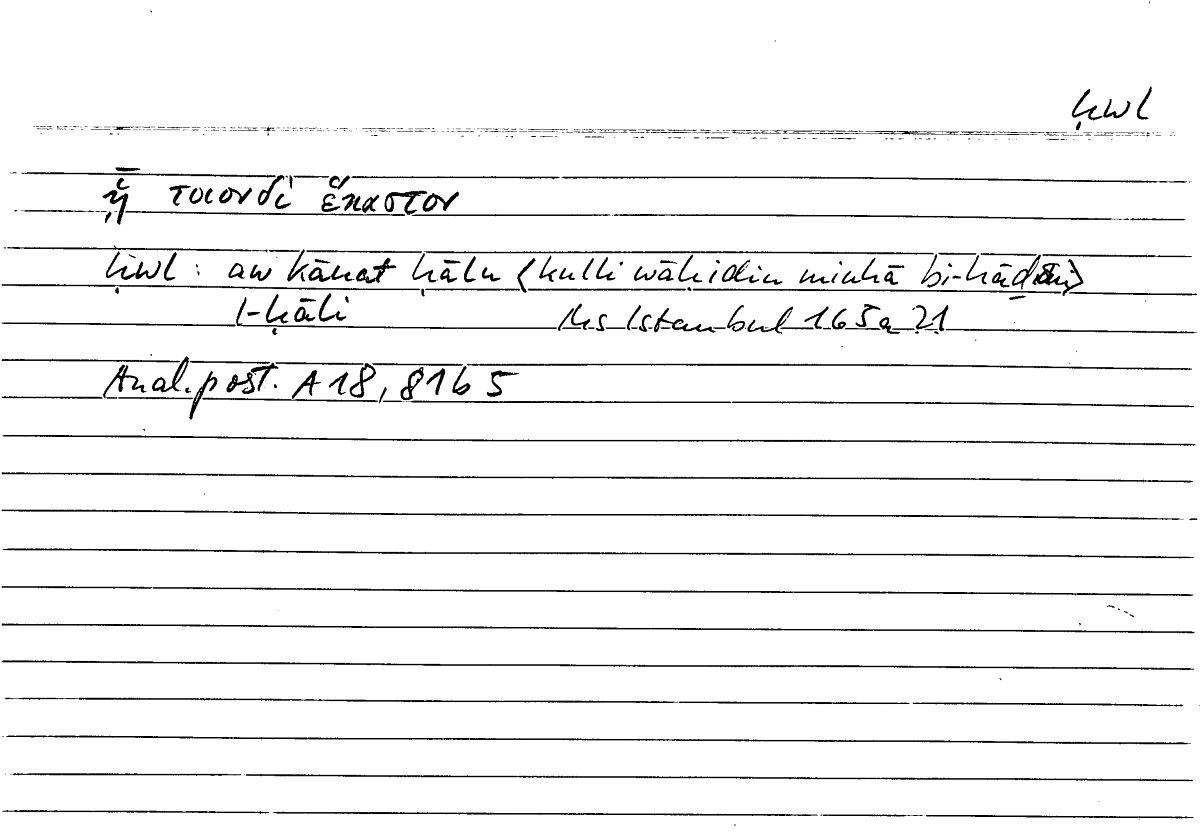 ḥwl
ᾗ τοιονδὶ ἕκαστον
ḥwl : aw kānat ḥālu ⟨kulli wāḥidin minhā bi-hāḏihi⟩
l-ḥāli Ms Istanbul 165a 21
Anal. post. A 18, 81b 5